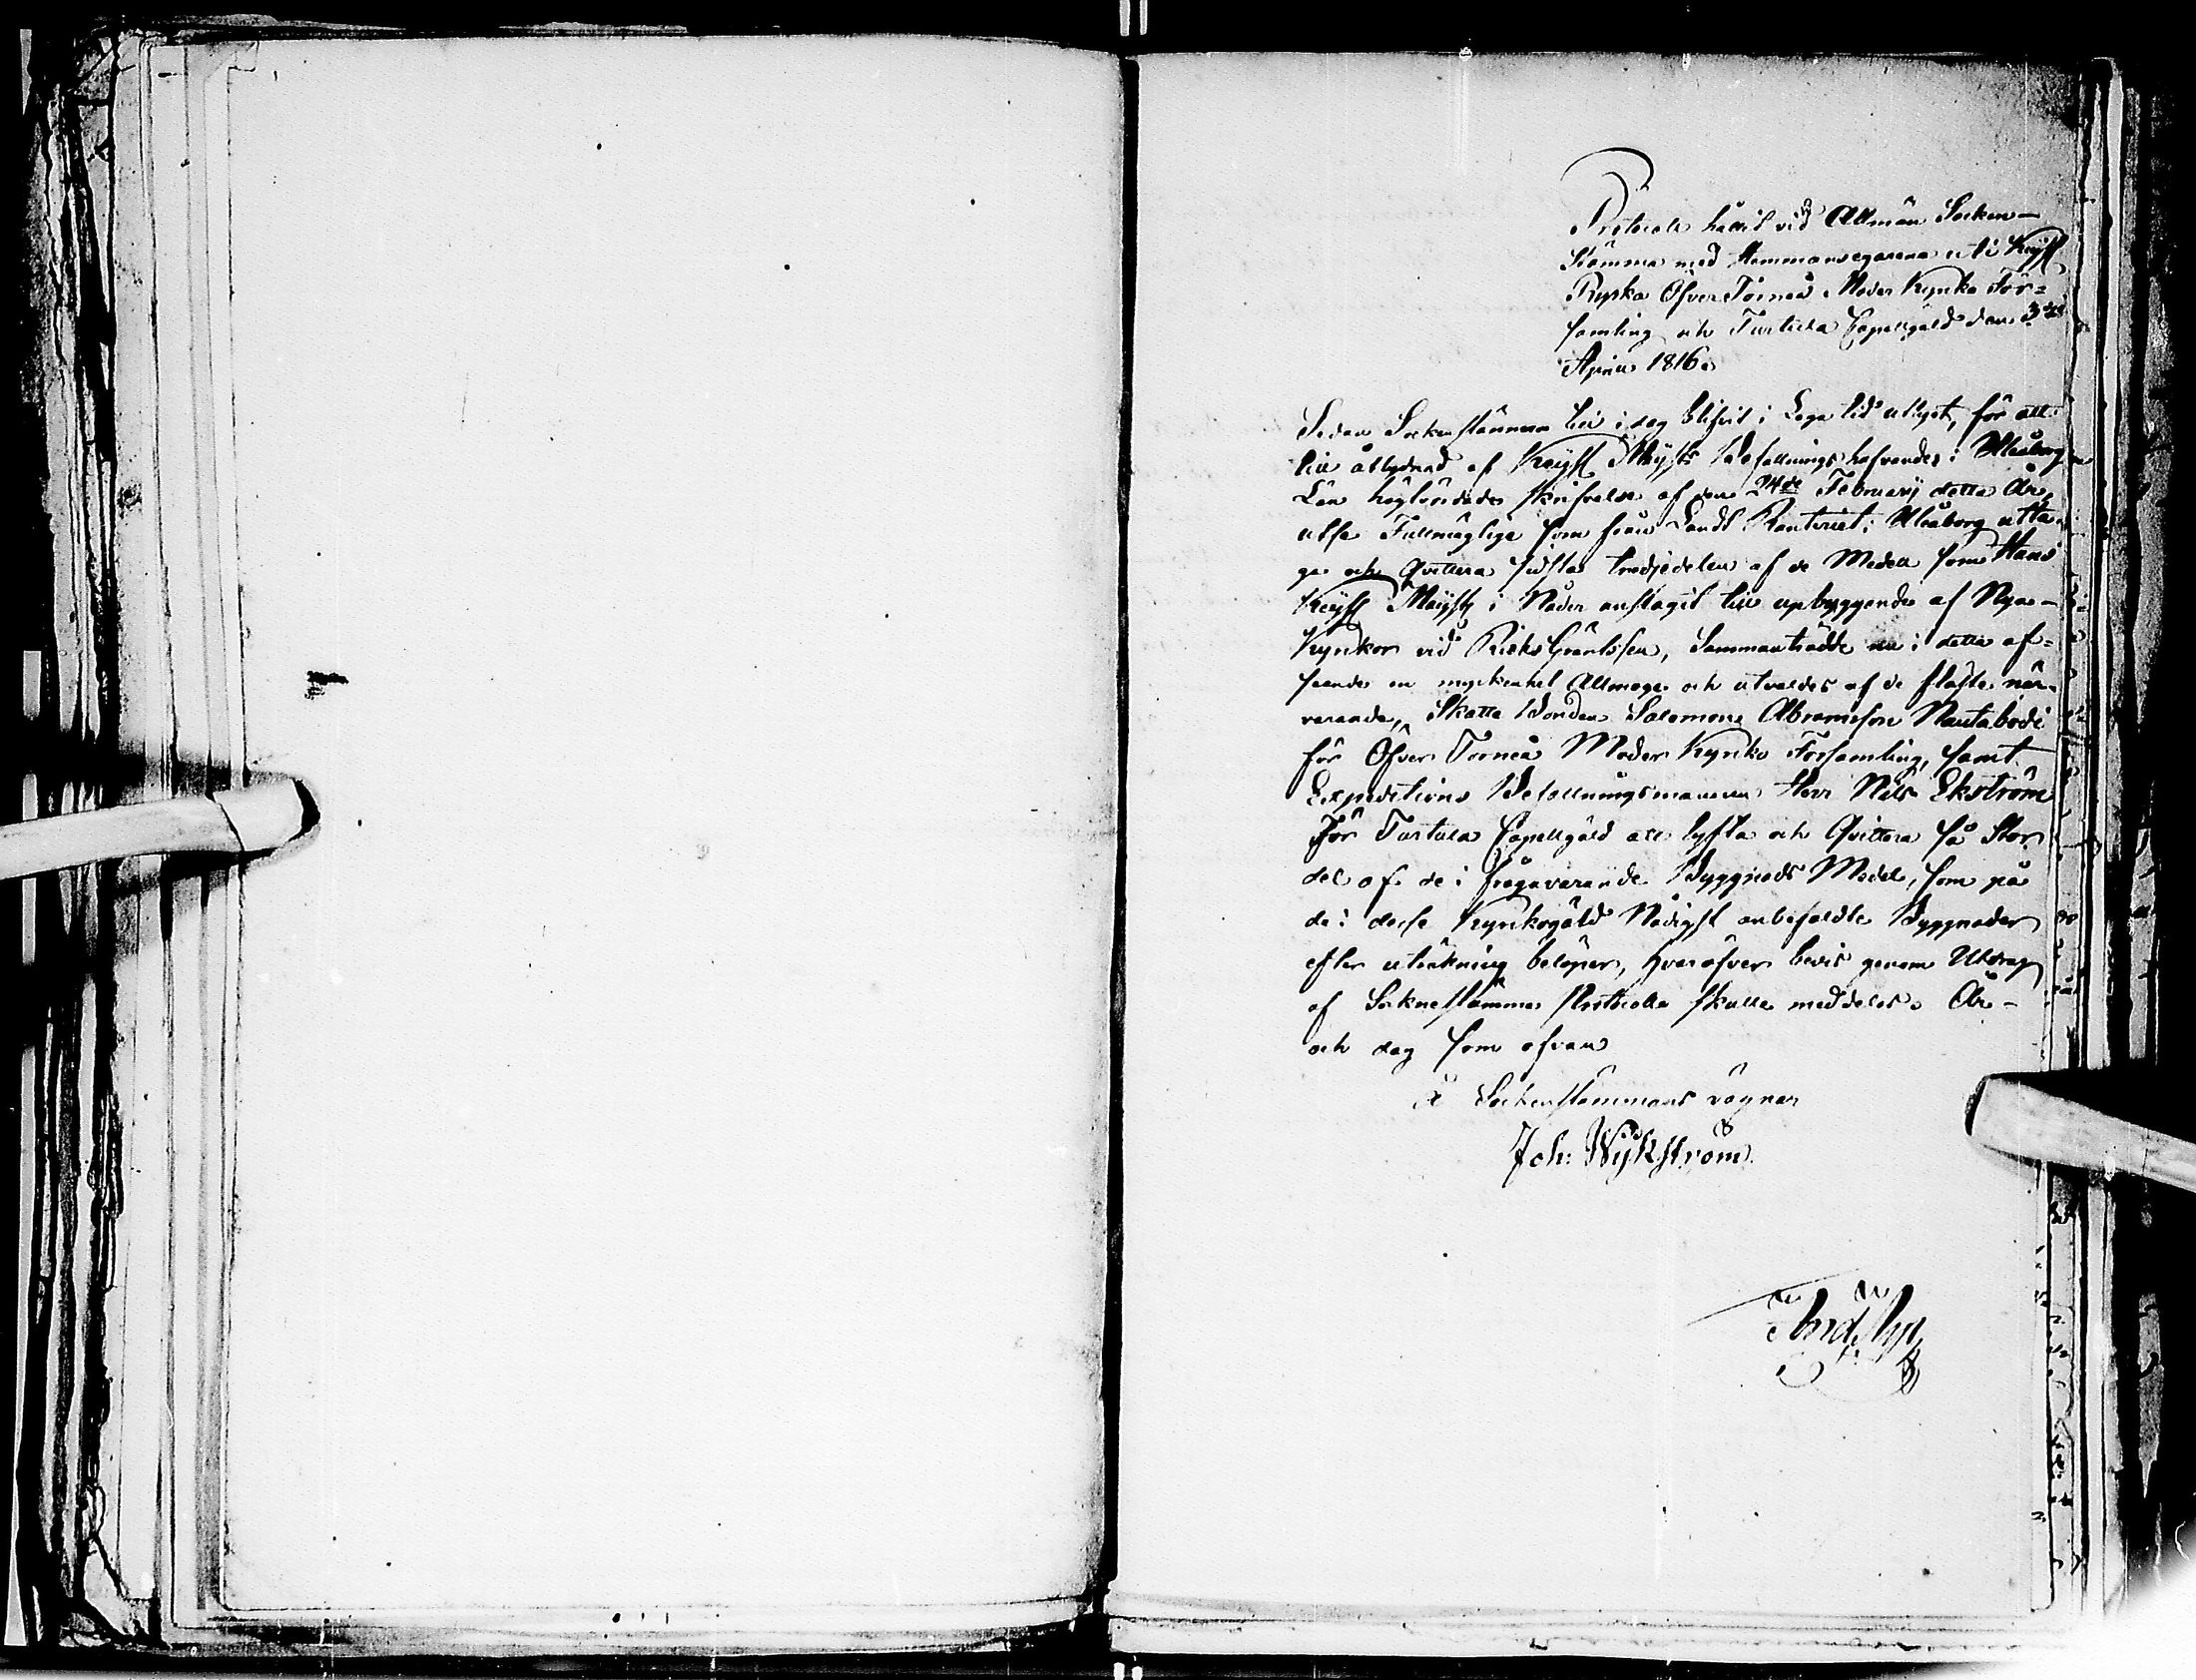 Protocoll hållit vid Allmän Socken-
Stämma med Hemmansegarena uti Keijsl
Ryska Öfver Torneå Moder Kyrko För=
samling och Turtula Capellgäld den 3die
April 1816.
Sedan Sockenstämma till i dag blifvit i Laga tid utlyst, för att
till åtlydnad af Keijsl Maijsts Befallningshafvandes i Uleåborgs
Län höglärdade skrifvelse af den 24de Februarij detta År,
utse Fullmägtige som från Landt Ränteriet i Uleåborg utta-
ga och Qvittera sidsta tredjedelen af de Medel som Hans
Keijsl Maijst i Nåder anslagit till upbyggande af Nya
Kyrkor vid RiksGräntssen, Sammanträdde nu i detta af=
seende en myckenhet Allmoge och utvaldes af de fläste när-
varande, Skatte Bonden Salomon Abramsson Nautabodi
för Öfver Torneå Moder Kyrko Församling, samt
Expeditions Befallningsmannen Herr Nils Ekström
För Turtula Capellgäld att lyfta och Qvittera så Stor
del af de i frågavarande Byggnads Medel, som på
de i desse Kyrkogäld Nådigst anbefaldte Byggnader
efter uträkning belöper, hvaröfver bevis genom Utdrag
af Socknestämmo Protocolle skulle meddelas. År
och dag som ofvan
På Sockenstämmans vägnar
Joh: Wijkström